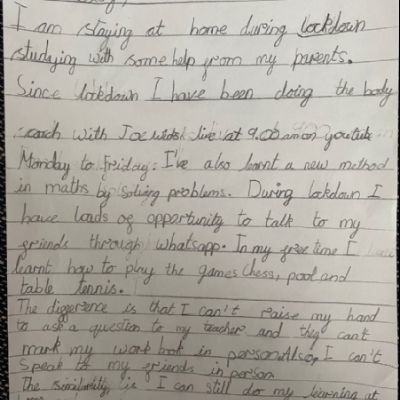 I am staying at home during lockdown
studying with some help from my parents.
Since lockdown I have been doing the body
coach with Joe live at 9.00 am on youtube
Monday to Friday. I've also learnt a new method
in maths by solving problems. During lockdown I
have loads of opportunity to talk to my
friends through whatsapp. In my free time I
learnt how to play the games Chess, pool and
table tennis.
The difference is that I can't raise my hand
to ask a question to my teacher and they can't
mark my work book in person. Also, I can't
Speak to my friends in person
The similarity is I can still do my learning at